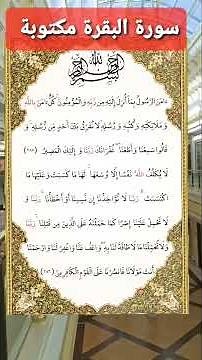 سورة البقرة مكتوبة
بسم الله الرحمن الرحيم
ءامن الرسول بما أنزل إليه من ربه والمؤمنون كل ءامن بالله
وملائكته وكتبه ورسله لا نفرق بين أحد من رسله و
قالوا سمعنا وأطعنا غفرانك ربنا وإليك المصير (٢٨٥)
لا يكلف الله نفسا إلا وسعها لها ما كسبت وعليها ما
اكتسبت ربنا لا تؤاخذنا إن نسينا أو أخطأنا ربنا و
لا تحمل علينا إصرا كما حملته على الذين من قبلنا ربنا
ولا تحملنا ما لا طاقة لنا به واعف عنا واغفر لنا وارحمنا
أنت مولانا فانصرنا على القوم الكافرين (٢٨٦)